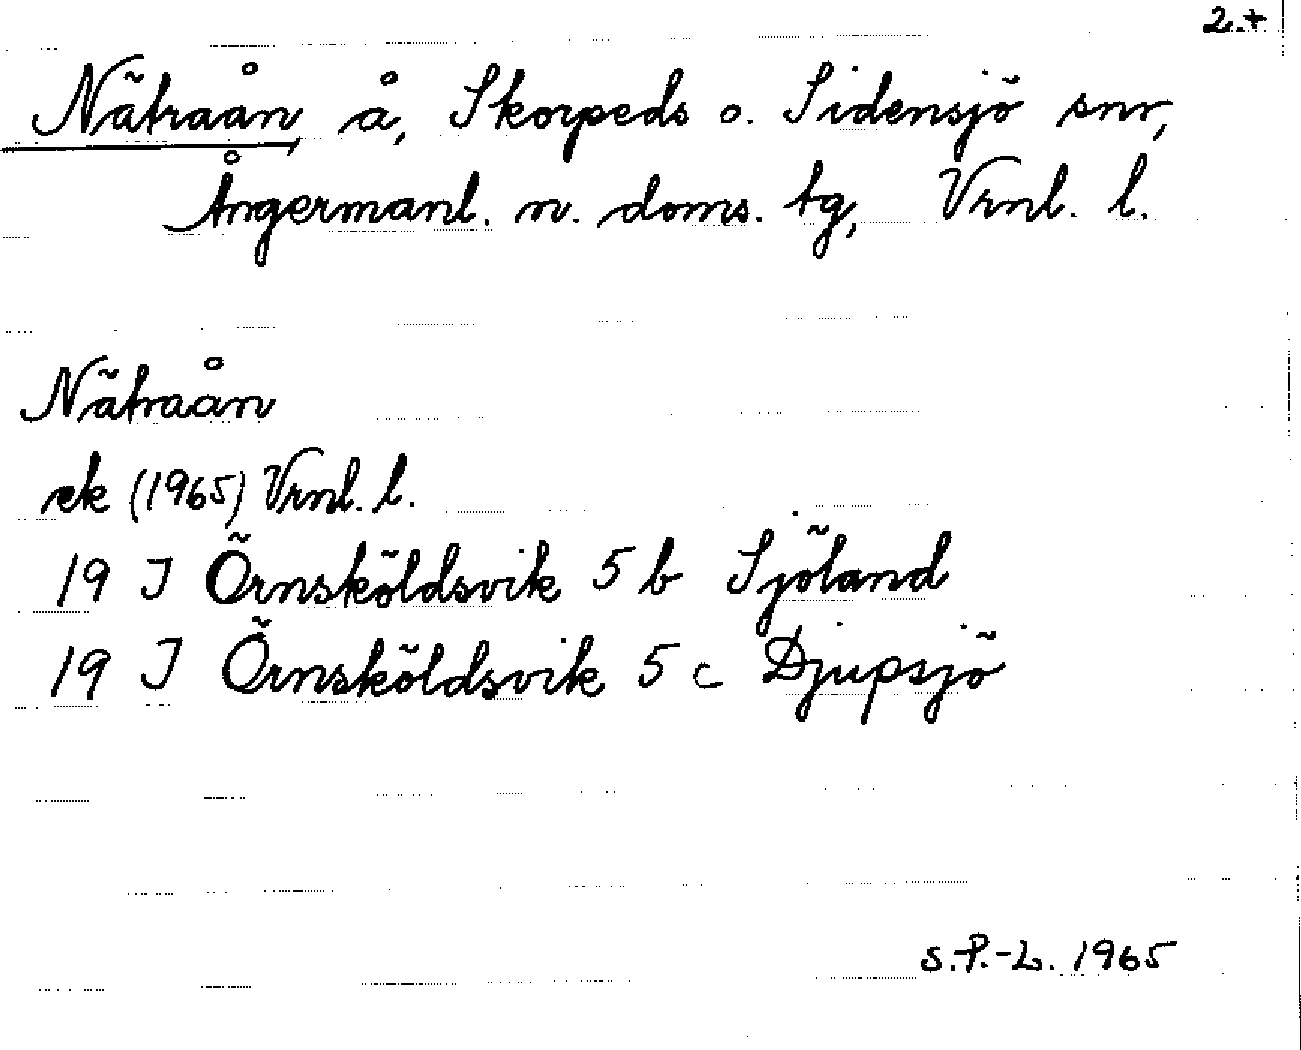 2.+
Nätraån, å, Skorpeds o. Sidensjö snr,
Ångermanl. n. doms. tg, Vrnl. l.
Nätraån
ek (1965) Vrnl. l.
19 J Örnsköldsvik 5 b Sjöland
19 J Örnsköldsvik 5 c Djupsjö
S.P.-L. 1965